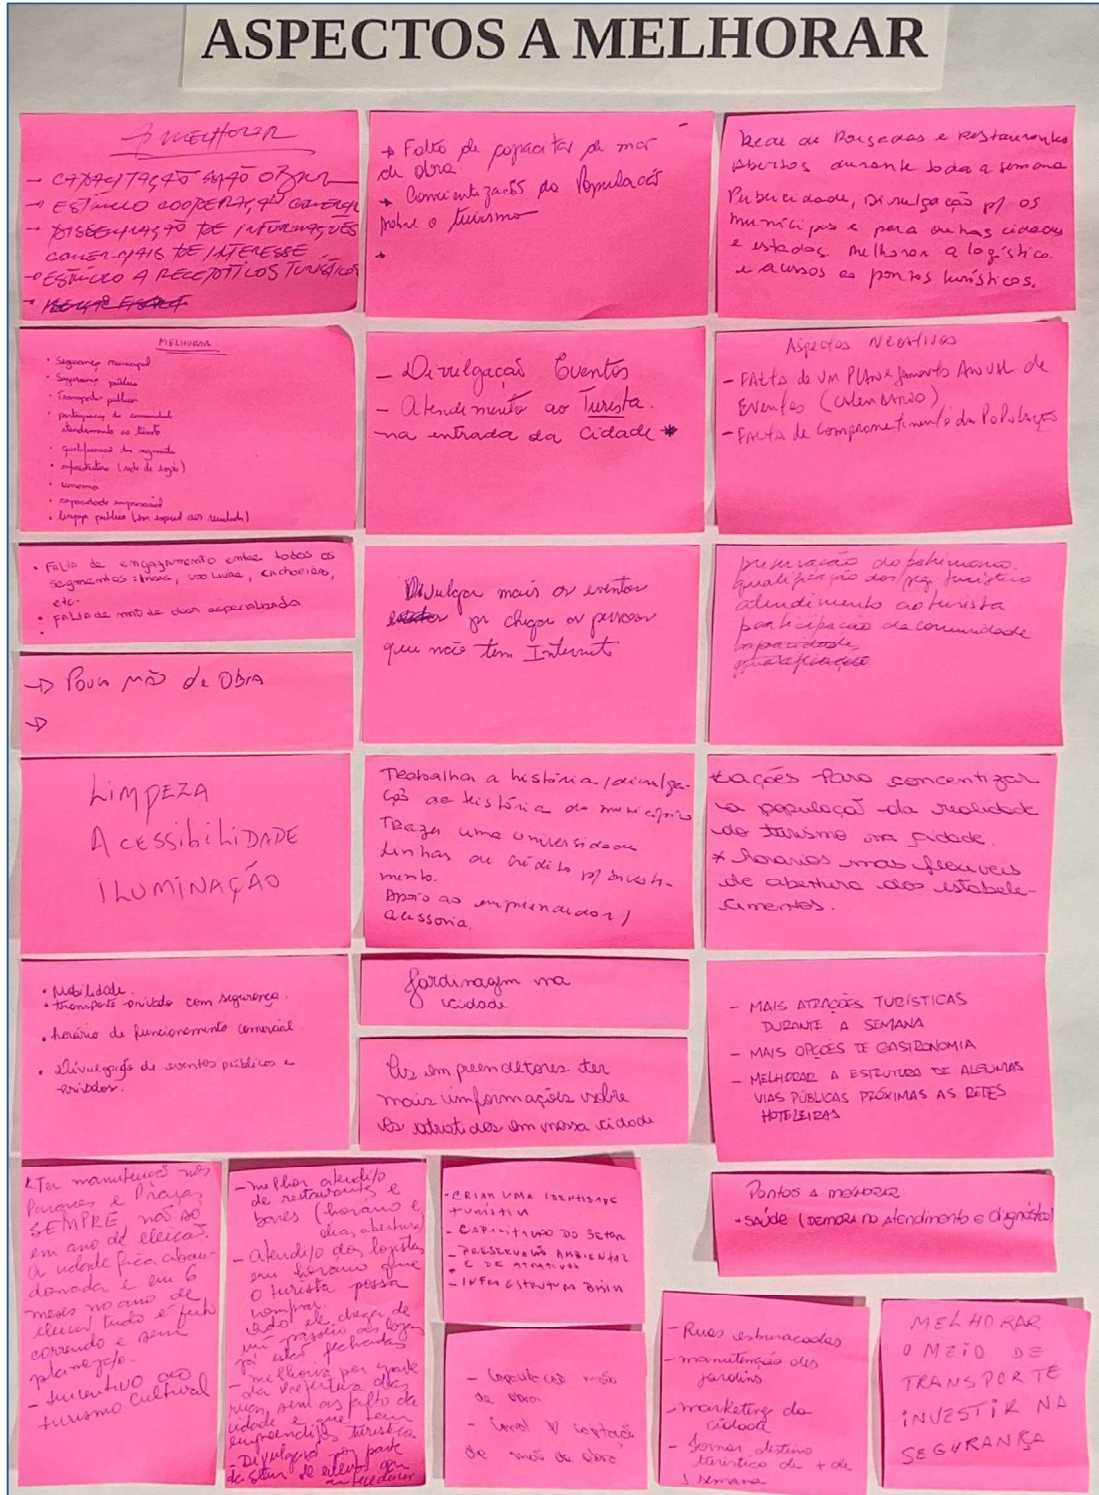 ASPECTOS A MELHORAR
A MELHORAR
- CAPACITAÇÃO MÃO OBRA
- ESTÍMULO COOPERAÇÃO
- DISSEMINAÇÃO DE INFORMAÇÕES
COMERCIAIS DE INTERESSE
- ESTÍMULO A RECEPTIVOS TURÍSTICOS
Falta de capacitar de mão
de obra.
Concientização da População
sobre o turismo
Rede de Pousadas e Restaurantes
abertos durante toda a semana
Publicidade, Divulgação p/ os
municípios e para outras cidades
e estados. Melhorar a logística
e acessos ao pontos turísticos.
MELHORAR
• Segurança municipal
• Segurança pública
• Transporte público
• participação da comunidade
atendimento ao turista
• qualificação do segmento
• infraestrutura
• capacidade empresarial
• limpeza pública
- Divulgação Eventos
- Atendimento ao Turista.
na entrada da Cidade *
Aspectos Negativos
- FALTA de UM PLANejamento ANUAL de
Eventos (calendário)
- FALTA de comprometimento da População
• Falta de engajamento entre todos os
segmentos:
etc.
• Falta de mão de obra especializada
Divulgar mais os eventos
pr chegar as pessoas
que não tem Internet
preservação do patrimonio.
qualificação dos seg. turístico
atendimento ao turista
participação da comunidade
capacidade
qualificação
-> Pouca MÃO de OBRA
->
LIMPEZA
ACESSIBILIDADE
ILUMINAÇÃO
Trabalhar a história / divulga-
ção da História do município
Trazer uma universidade
Linhas de crédito p/ investi-
mento.
Apoio ao empreendedor /
acessoria.
ações Para concentizar
a população da realidade
do turismo na cidade.
* horarios mas flexiveis
de abertura dos estabele-
cimentos.
• Mobilidade.
• transporte privado com segurança.
• horário de funcionamento comercial.
• Divulgação de eventos públicos e
privados.
Jardinagem na
cidade
Os empreendetores ter
mais umformações sobre
os atratidos em nossa cidade
- MAIS ATRAÇÕES TURÍSTICAS
DURANTE A SEMANA
- MAIS OPÇÕES DE GASTRONOMIA
- MELHORAR A ESTRUTURA DE ALGUMAS
VIAS PÚBLICAS PRÓXIMAS AS REDES
HOTELEIRAS
* Ter manutenção nos
Parques e Praças
SEMPRE, não só
em ano de eleição.
A cidade fica aban-
donada e em 6
meses no ano de
eleição tudo é feito
correndo e sem
planejo.
- Incentivo ao
turismo Cultural
- melhor atendi/o
de restaurantes e
bares (horario e
dias abertura)
- Atendi/o dos logistas
em horario que
o turista possa
comprar.
ele chega de
um passeio as lojas
já estão fechadas
- melhoria por parte
da Prefeitura das
ruas, sem asfalto da
cidade e que tem
turistica
- Divulgação por parte
do setor de eventos
- CRIAR UMA IDENTIDADE
TURÍSTICA
- CAPACITAÇÃO DO SETOR
- PRESERVAÇÃO AMBIENTAL
E DE ATRATIVOS
- INFRA ESTRUTURA BÁSICA
Pontos a melhorar
- SAÚDE (DEMORA NO Atendimento e diagnóstico)
- Capacitação mão
de obra
de mão de obra
- Ruas esburacadas
- manutenção dos
jardins
- marketing da
cidade
- Tornar destino
turístico de + de
1 semana
MELHORAR
O MEIO DE
TRANSPORTE
INVESTIR NA
SEGURANÇA